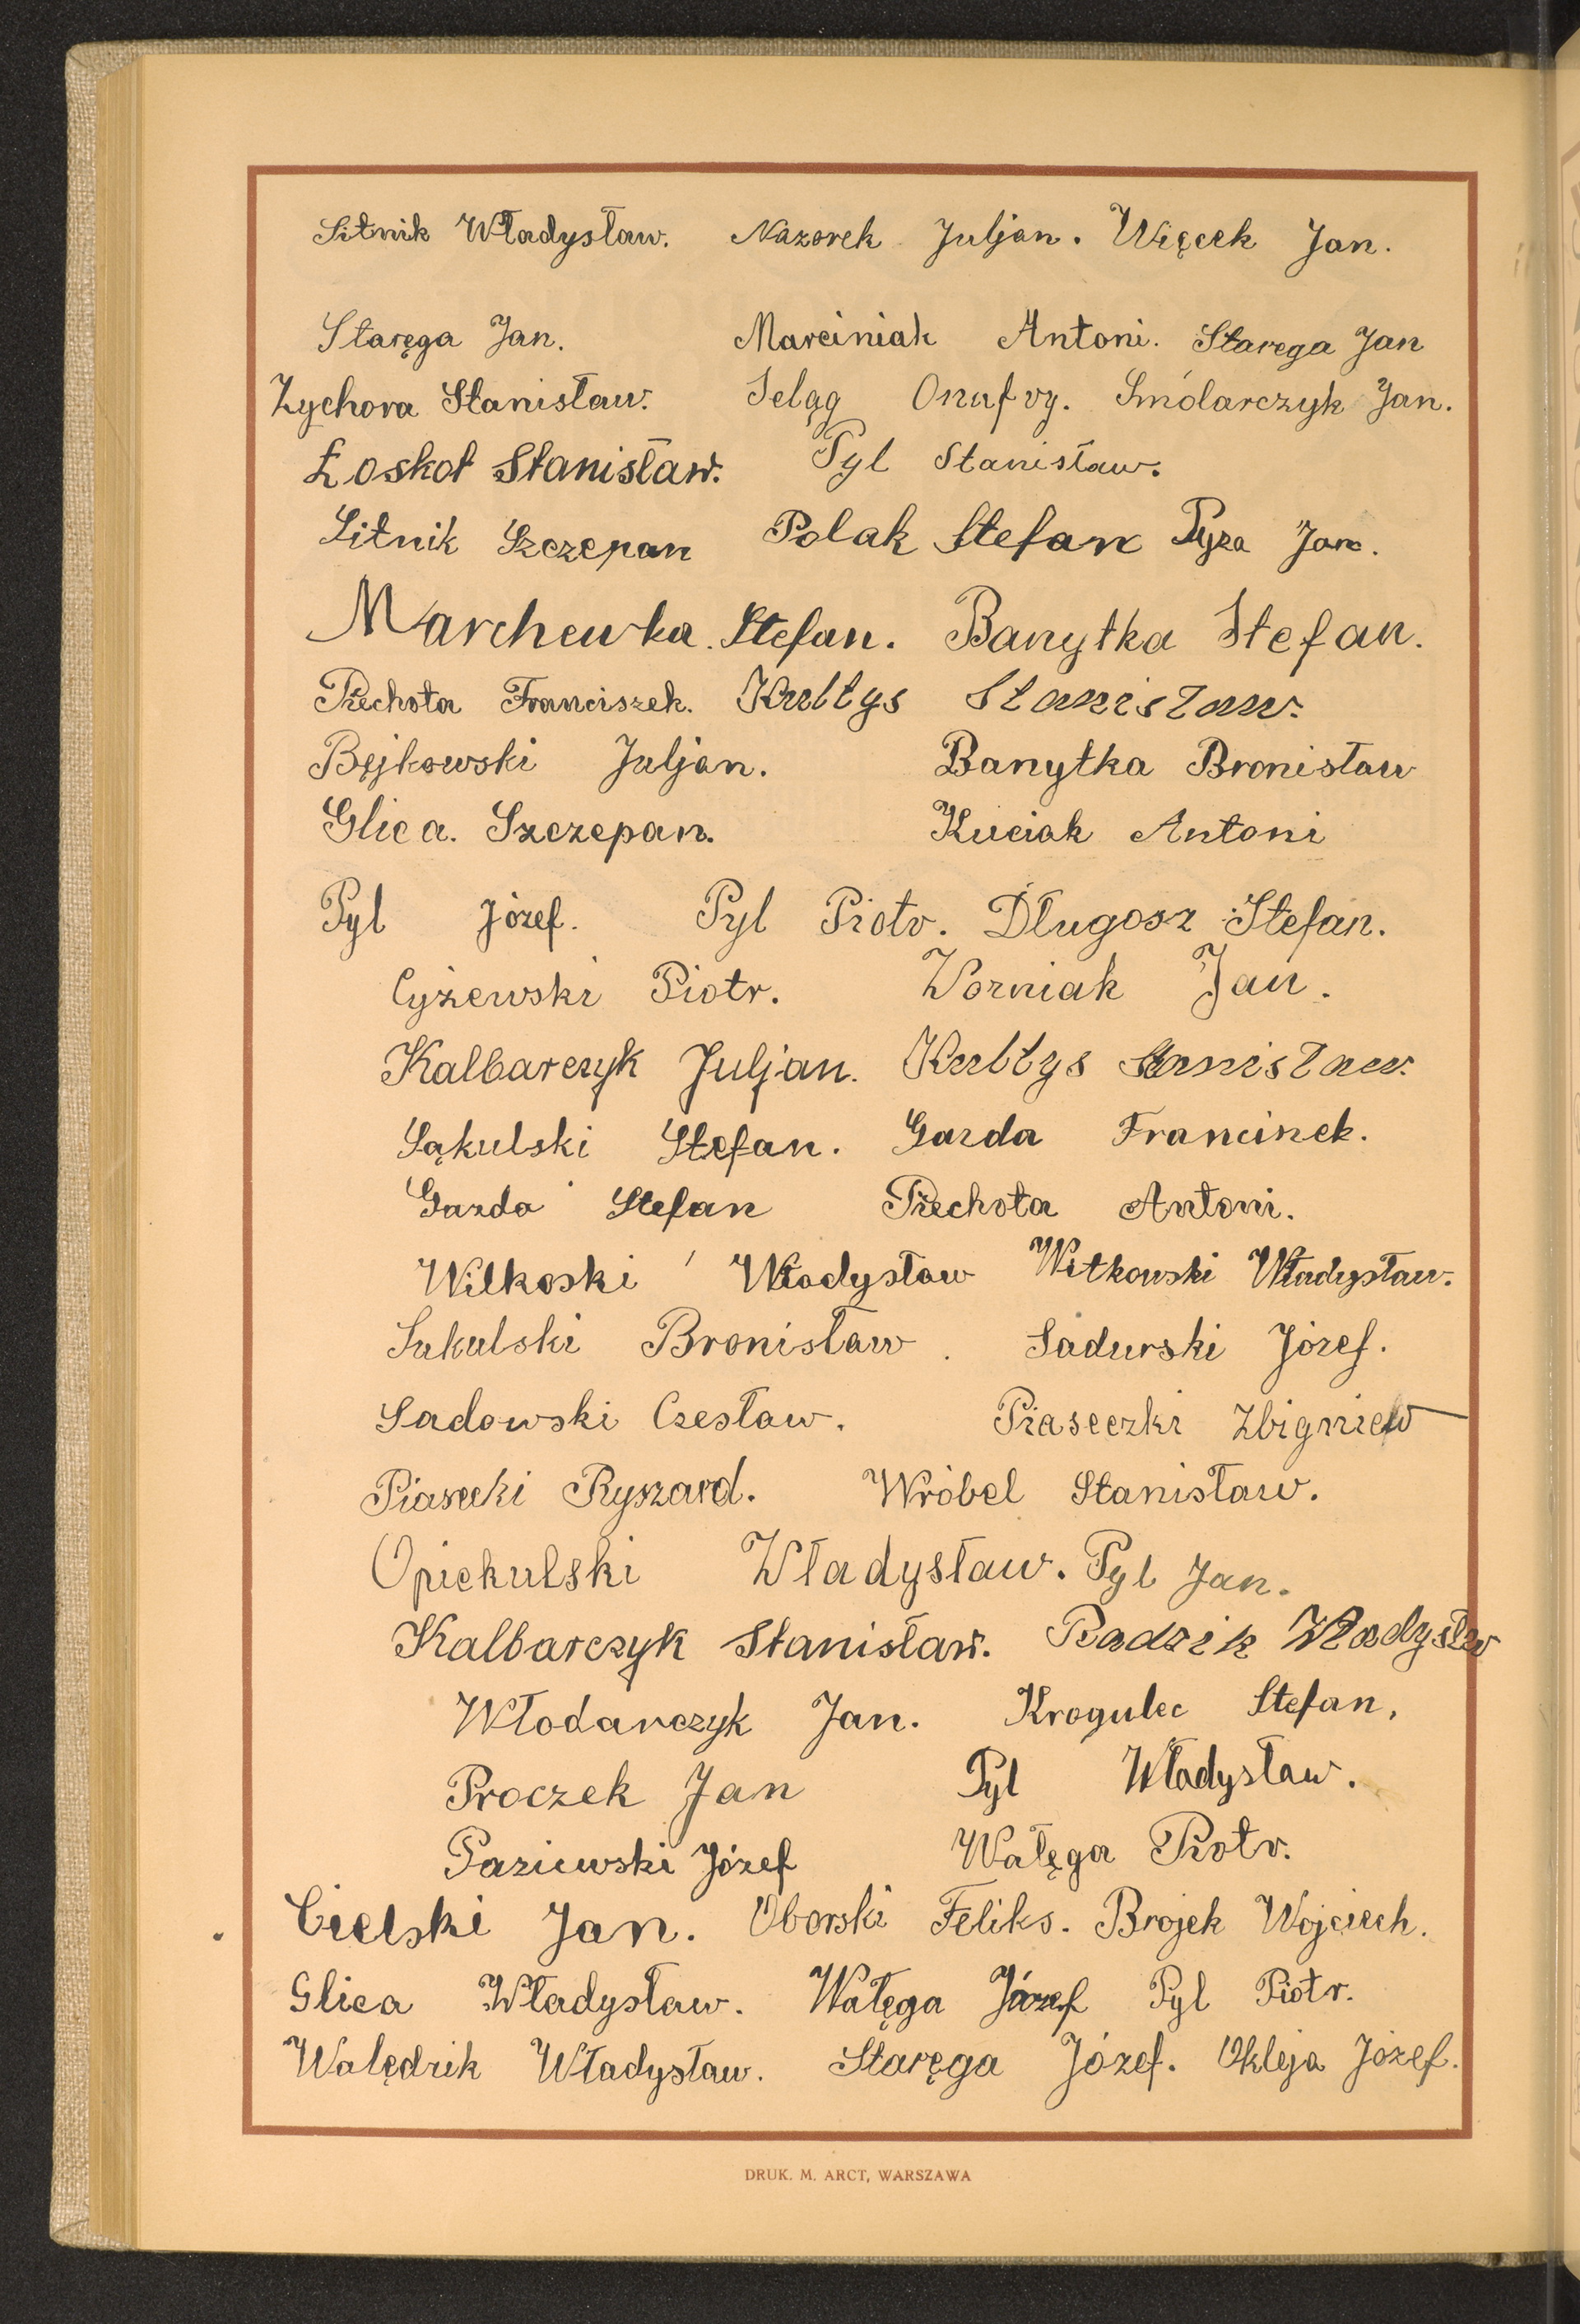 Sitnik Władysław. Nazorek Juljan. Więcek Jan.
Staręga Jan. Marciniak Antoni. Staręga Jan
Zychora Stanisław. Seląg Onufry. Smólarczyk Jan.
Łoskot Stanisław. Pyl Stanisław.
Sitnik Szczepan Polak Stefan Pyza Jan.
Marchewka Stefan. Banytka Stefan.
Piechota Franciszek. Kultys Stanisław.
Bęjkowski Juljan. Banytka Bronisław
Glica. Szczepan. Kuciak Antoni
Pyl Józef. Pyl Piotr. Długosz Stefan.
Cyżewski Piotr. Worniak Jan.
Kalbarczyk Juljan. Kultys Stanisław.
Sąkulski Stefan. Gazda Francinek.
Gazda Stefan Piechota Antoni.
Wilkoski Władysław Witkowski Władysław.
Sakulski Bronisław. Sadurski Józef.
Sadowski Czesław. Piaseczki Zbigniew
Piasecki Ryszard. Wróbel Stanisław.
Opiekulski Władysław. Pyl Jan.
Kalbarczyk Stanisław. Radzik Władysłw
Włodarczyk Jan. Krogulec Stefan,
Proczek Jan Pyl Władysław.
Paziewski Józef Wałęga Piotr.
Cielski Jan. Oborski Feliks. Brojek Wojciech.
Glica Władysław. Wałęga Józef Pyl Piotr.
Walędzik Władysław. Staręga Józef. Okleja Józef.
DRUK. M. ARCT, WARSZAWA